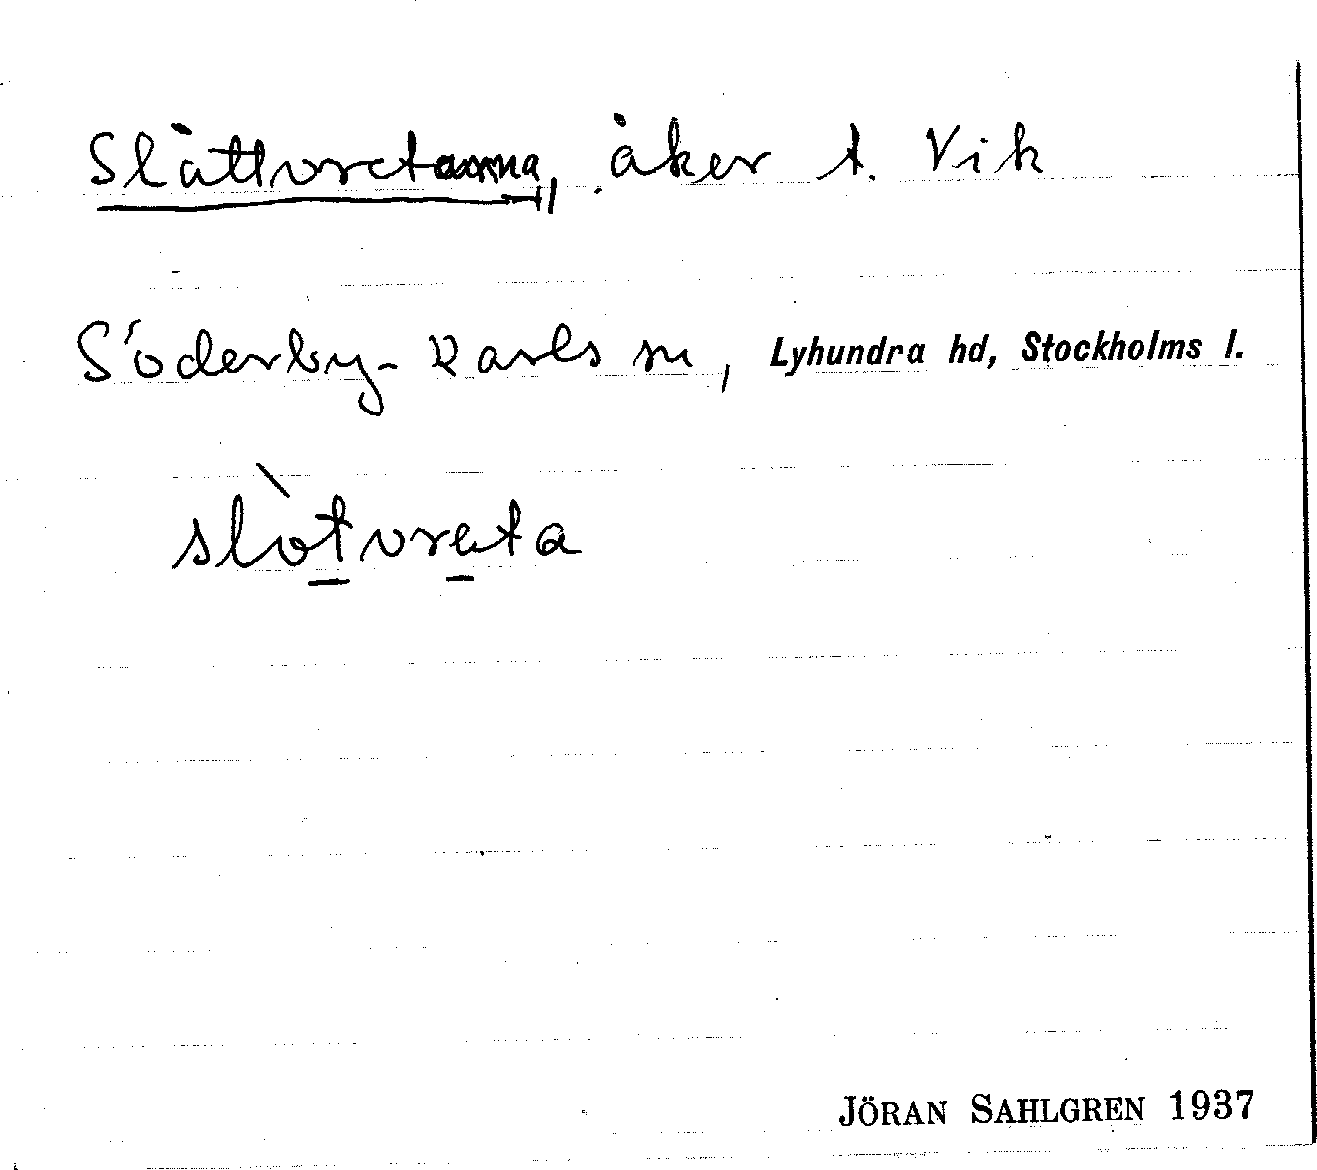 Slåttvretarna, åker t. Vik
Söderby-Karls sn, Lyhundra hd, Stockholms l.
slòtvreta
JÖRAN SAHLGREN 1937